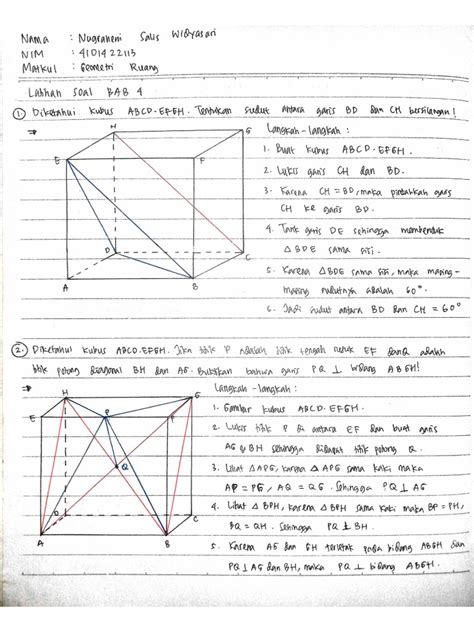 Nama : Nugraheni Salis Widyasari
NIM : 4101422113
Matkul : Geometri Ruang
Latihan Soal BAB 4
1. Diketahui kubus ABCD.EFGH. Tentukan sudut antara garis BD dan CH bersilangan!
Langkah-langkah :
1. Buat kubus ABCD.EFGH.
2. Lukis garis CH dan BD.
3. Karena CH = BD, maka pindahkan garis
CH ke garis BD.
4. Tarik garis DE sehingga membentuk
△BDE sama sisi.
5. Karena △BDE sama sisi, maka masing-
masing sudutnya adalah 60°.
6. Jadi sudut antara BD dan CH = 60°
H
G
E
F
D
C
A
B
2. Diketahui kubus ABCD.EFGH. Jika titik P adalah titik tengah rusuk EF dan Q adalah
titik potong diagonal BH dan AG. Buktikan bahwa garis PQ ⊥ bidang ABGH!
Langkah-langkah :
1. Gambar kubus ABCD.EFGH.
2. Lukis titik P di antara EF dan buat garis
AG & BH sehingga didapat titik potong Q.
3. Lihat △APG, karena △APG sama kaki maka
AP = PG, AQ = QG. Sehingga PQ ⊥ AG
4. Lihat △BPH, karena △BPH sama kaki maka BP = PH,
BQ = QH. Sehingga PQ ⊥ BH.
5. Karena AG dan BH terletak pada bidang ABGH dan
PQ ⊥ AG dan BH, maka PQ ⊥ bidang ABGH.
H
G
E
P
F
Q
D
C
A
B